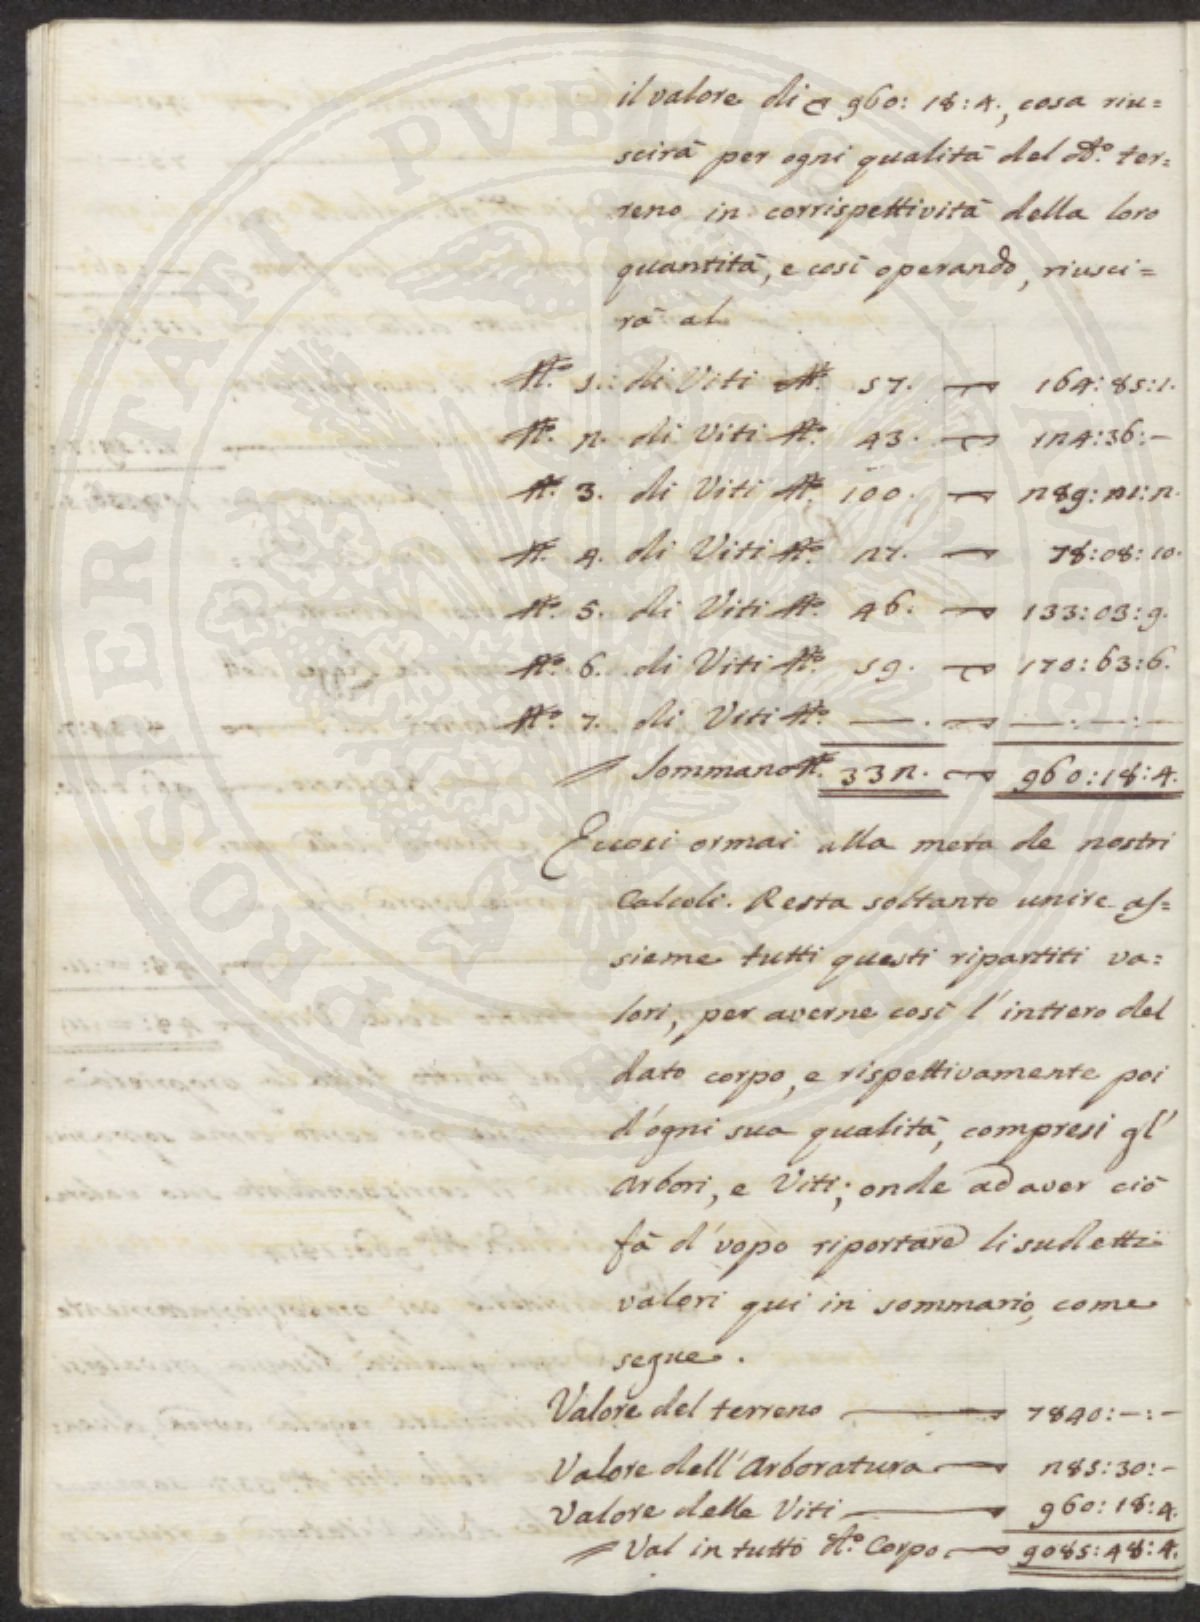 il valore di ᘔ 960: 18: 4., cosa riu=
scirà per ogni qualità del d.º ter=
reno in corrispettività della loro
quantità, e così operando, riusci=
rà al
N.º 1. di Viti N.º 57. 164: 85: 1.
N.º 2. di Viti N.º 43. 124: 36: –
N.º 3. di Viti N.º 100. 289: 21: 2.
N.º 4. di Viti N.º 27. 78: 08: 10.
N.º 5. di Viti N.º 46. 133: 03: 9.
N.º 6. di Viti N.º 59. 170: 63: 6.
N.º 7. di Viti N.º —. —: —: —
Sommano N.º 332. 960: 18: 4.
Eccoci ormai alla meta de nostri
Calcoli. Resta soltanto unire as=
sieme tutti questi ripartiti va=
lori, per averne così l'intiero del
dato corpo, e rispettivamente poi
d'ogni sua qualità, compresi gl'
Arbori, e Viti; onde ad aver ciò
fà d'vopo riportare li sudetti
valori qui in sommario, come
segue.
Valore del terreno — 7840: –: –
Valore dell'Arboratura — 285: 30: –
Valore delle Viti — 960: 18: 4.
Val in tutto d.º Corpo — 9085: 48: 4.
PROSPERITATI PVBLICAE AVGENDAE